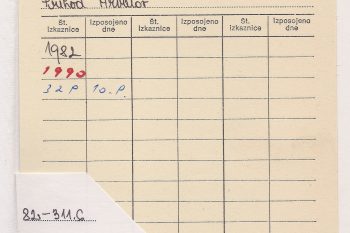 Prihod
Št. izkaznice Izposojeno dne Št. izkaznice Izposojeno dne Št. izkaznice Izposojeno dne
1982
1990
32 P 10. P.
82-311.6